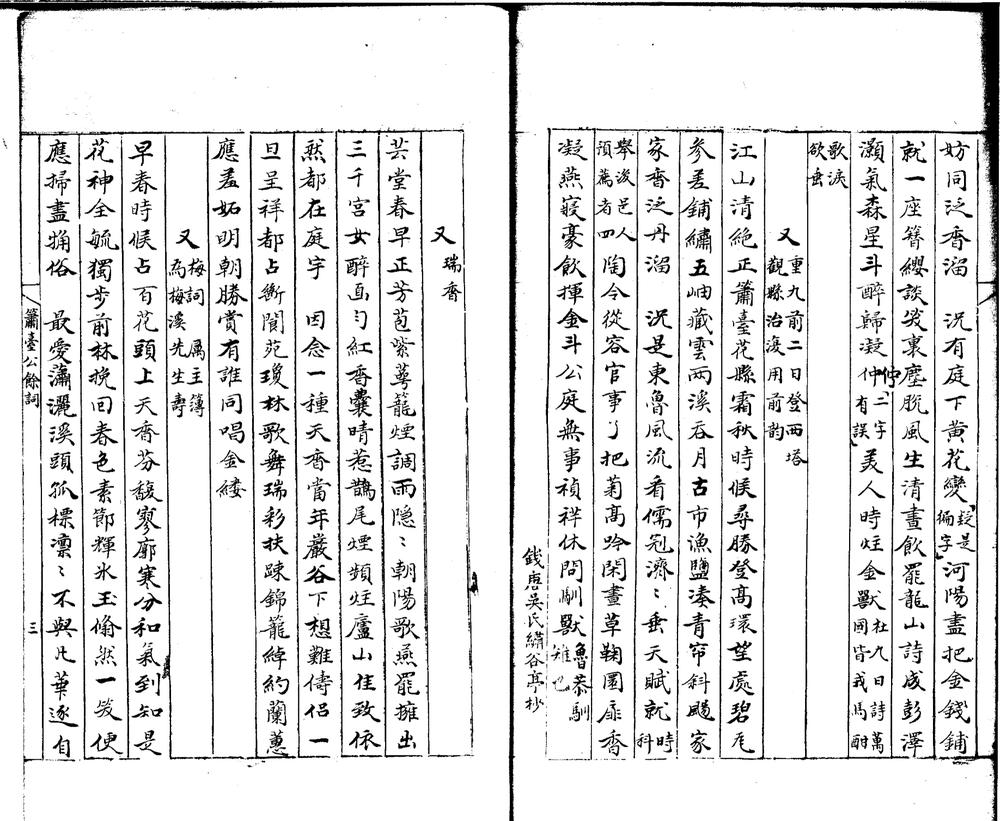 妨同泛香溜　況有庭下黄花變疑是徧字河陽盡把金錢鋪
就一座簪纓談笑裏塵脫風生清晝飲罷龍山詩成彭澤
灝氣森星斗醉歸凝仲仲二字有誤美人時炷金獸杜九日詩萬國皆戎馬酣
歌淚欲垂
又重九前二日登西塔觀縣治復用前韵
江山清絶正簫臺花縣霜秋時候尋勝登高環望處碧瓦
參差鋪繡五岫藏雲兩溪吞月古市漁鹽湊青帘斜颺家
家香泛丹溜　況是東魯風流看儒冠濟〻垂天賦就時科
舉後邑人預薦者四陶令從容官事了把菊高吟閑晝草鞠圜扉香
凝燕寢豪飲揮金斗公庭無事禎祥休問馴獸魯恭馴雉也
錢唐吳氏繡谷亭抄
又瑞香
芸堂春早正芳苞紫萼籠煙調雨隱〻朝陽歌燕罷擁出
三千宮女醉面勻紅香囊晴惹鵲尾煙頻炷廬山佳致依
然都在庭宇　因念一種天香當年巖谷下想難儔侣一
旦呈祥都占斷閬苑瓊林歌舞瑞彩扶疎錦籠綽約蘭蕙
應羞妬明朝勝賞有誰同唱金縷
又梅詞属主簿為梅溪先生壽
早春時候占百花頭上天香芬馥寥廓寒分和氣到知是
花神全毓獨步前林挽回春色素節輝氷玉翛然一笑便
應掃盡粗俗　最愛瀟灑溪頭孤標凛〻不與凡華逐自
簫臺公餘詞
三